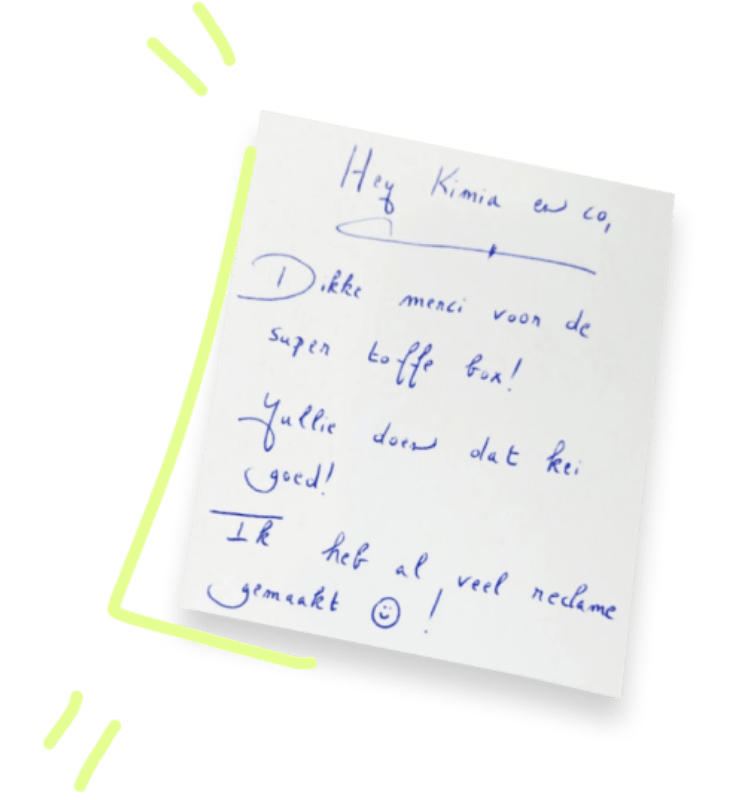 Hey Kimia en co,
Dikke merci voor de
super toffe box!
Jullie doen dat kei
goed!
Ik heb al veel reclame
gemaakt ☺ !